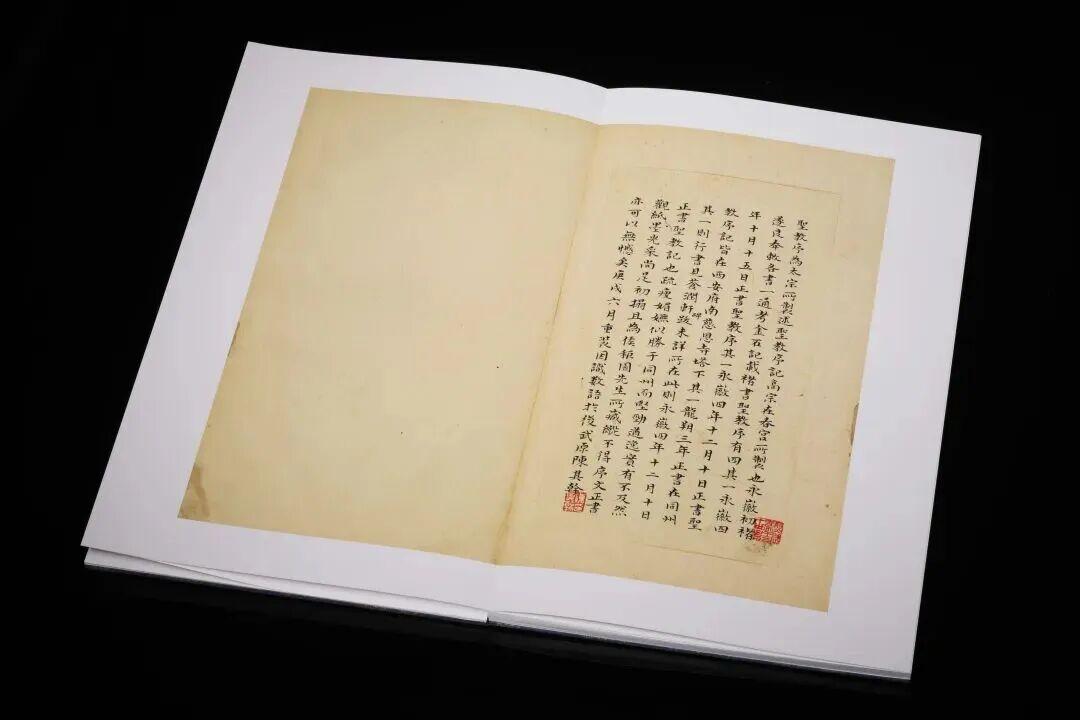 聖教序為太宗所製述聖教序記高宗在春宮所製也永徽初褚
遂良奉敕各書一通考金石記載褚書聖教序有四其一永徽四
年十月十五日正書聖教序其一永徽四年十二月十日正書聖
教序記皆在西安府南慈恩寺塔下其一龍朔三年正書在同州
其一則行書見蒼潤軒碑跋未詳所在此則永徽四年十二月十日
正書聖教記也疏瘦媚嫵似勝于同州而堅勁遒逸實有不及然
觀紙墨光采尚是初搨且為侯銀園先生所藏縱不得序文正書
亦可以無憾矣庚戌六月重裝因識數語於後武原陳其